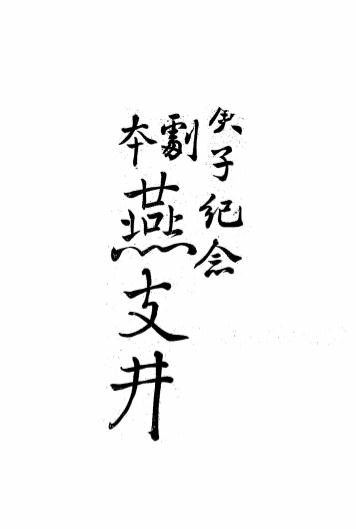 庚子紀念
劇本
燕支井